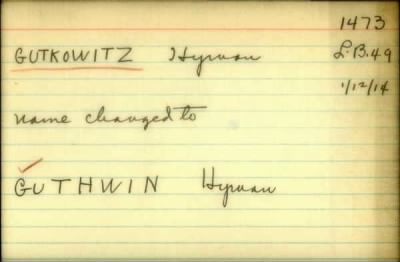 1473
GUTKOWITZ Hyman L.B.49
1/12/14
name changed to
GUTHWIN Hyman